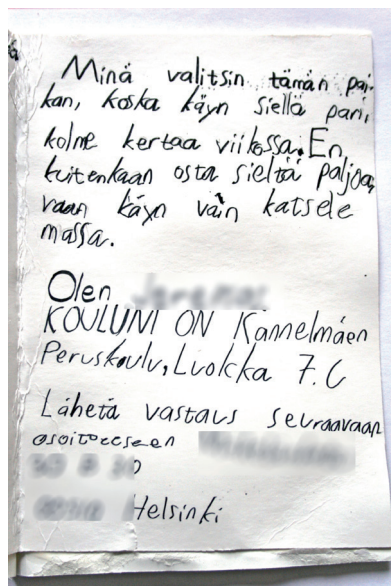 Minä valitsin tämän pai-
kan, koska käyn siellä pari,
kolme kertaa viikossa. En
kuitenkaan osta sieltä paljoa,
vaan käyn vain katsele
massa.
Olen
KOULUNI ON Kannelmäen
Peruskoulu, Luokka 7.C
Lähetä vastaus seuraavaan
osoitteeseen
Helsinki